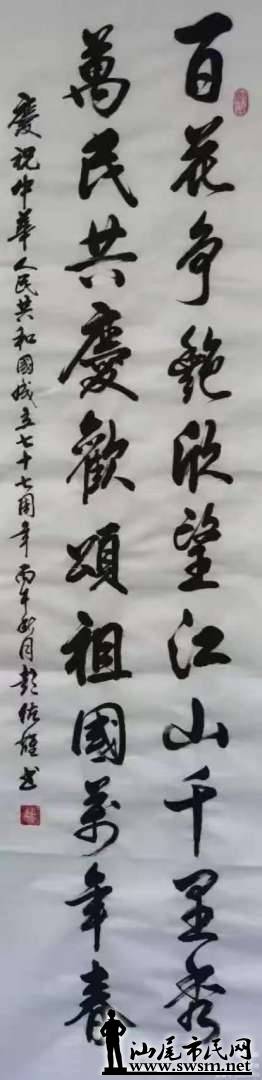 百花争艷欣望江山千里秀
萬民共慶歡頌祖國萬年春
慶祝中華人民共和國成立七十七周年 丙午月彭书
汕尾市民网
www.swsm.net